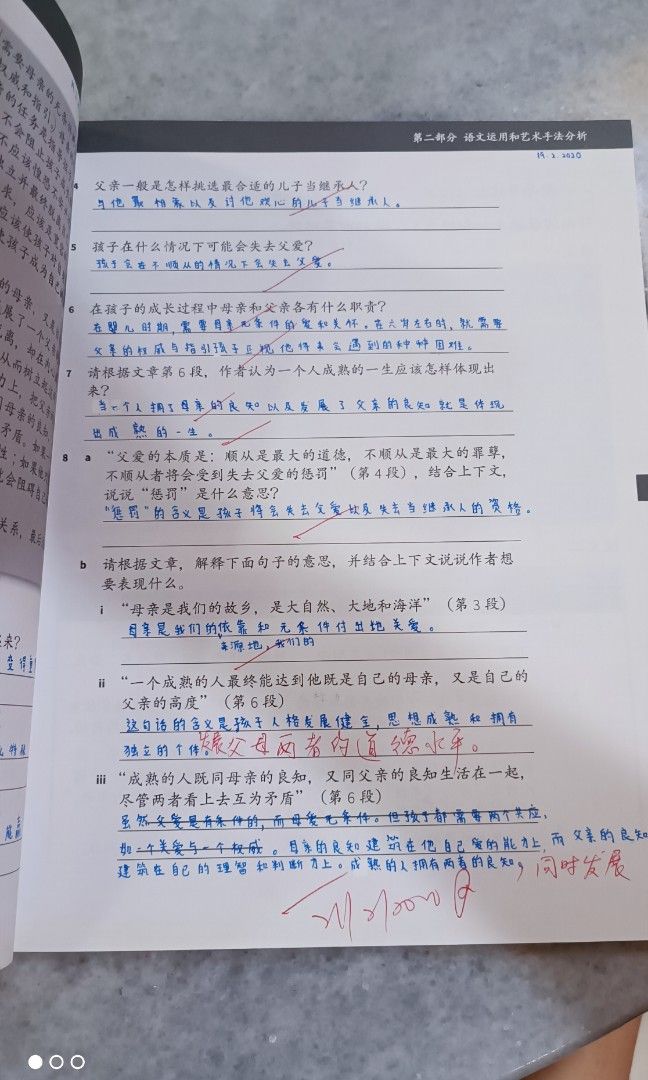 第二部分 语文运用和艺术手法分析
19.2.2020
4 父亲一般是怎样挑选最合适的儿子当继承人?
与他最相象以及讨他欢心的儿子当继承人。
5 孩子在什么情况下可能会失去父爱?
孩子会在不顺从的情况下会失去父爱。
6 在孩子的成长过程中母亲和父亲各有什么职责?
在婴儿时期,需要母亲无条件的爱和关怀。在六岁左右时,就需要
父亲的权威与指引孩子正视他将来会遇到的种种困难。
7 请根据文章第6段,作者认为一个人成熟的一生应该怎样体现出
来?
当一个人拥了母亲的良知以及发展了父亲的良知就是体现
出成熟的一生。
8 a “父爱的本质是:顺从是最大的道德,不顺从是最大的罪孽,
不顺从者将会受到失去父爱的惩罚”(第4段),结合上下文,
说说“惩罚”是什么意思?
“惩罚”的含义是孩子将会失去父爱以及失去当继承人的资格。
b 请根据文章,解释下面句子的意思,并结合上下文说说作者想
要表现什么。
i “母亲是我们的故乡,是大自然、大地和海洋”(第3段)
母亲是我们的依靠和无条件付出地关爱。
来源地,我们的
ii “一个成熟的人最终能达到他既是自己的母亲,又是自己的
父亲的高度”(第6段)
这句话的含义是孩子人格发展健全,思想成熟和拥有
独立的个体。父母两者的道德水平。
iii “成熟的人既同母亲的良知,又同父亲的良知生活在一起,
尽管两者看上去互为矛盾”(第6段)
虽然父爱是有条件的,而母爱无条件。但孩子都需要两个共应,
如一个关爱与一个权威。母亲的良知建筑在他自己爱的能力上,而父亲的良知
建筑在自己的理智和判断力上。成熟的人拥有两者的良知,同时发展